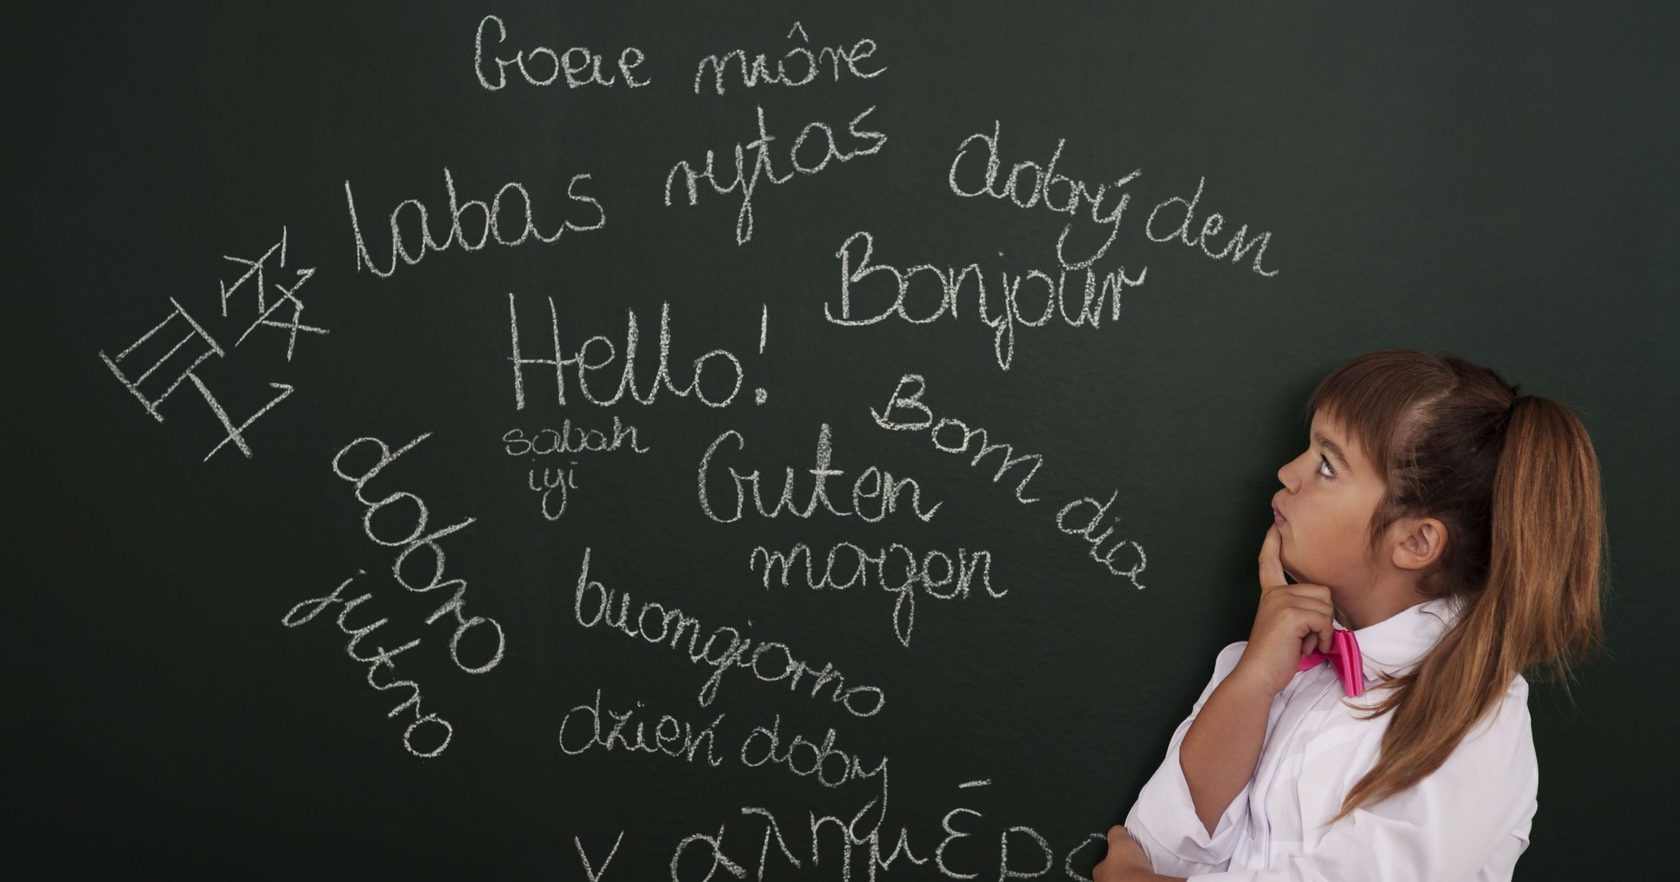 Goeie môre
labas rytas
dobrý den
早安
Bonjour
Hello!
sabah
iyi
Bom dia
Guten
morgen
dobro
jutro
buongiorno
dzień dobry
καλημέρα